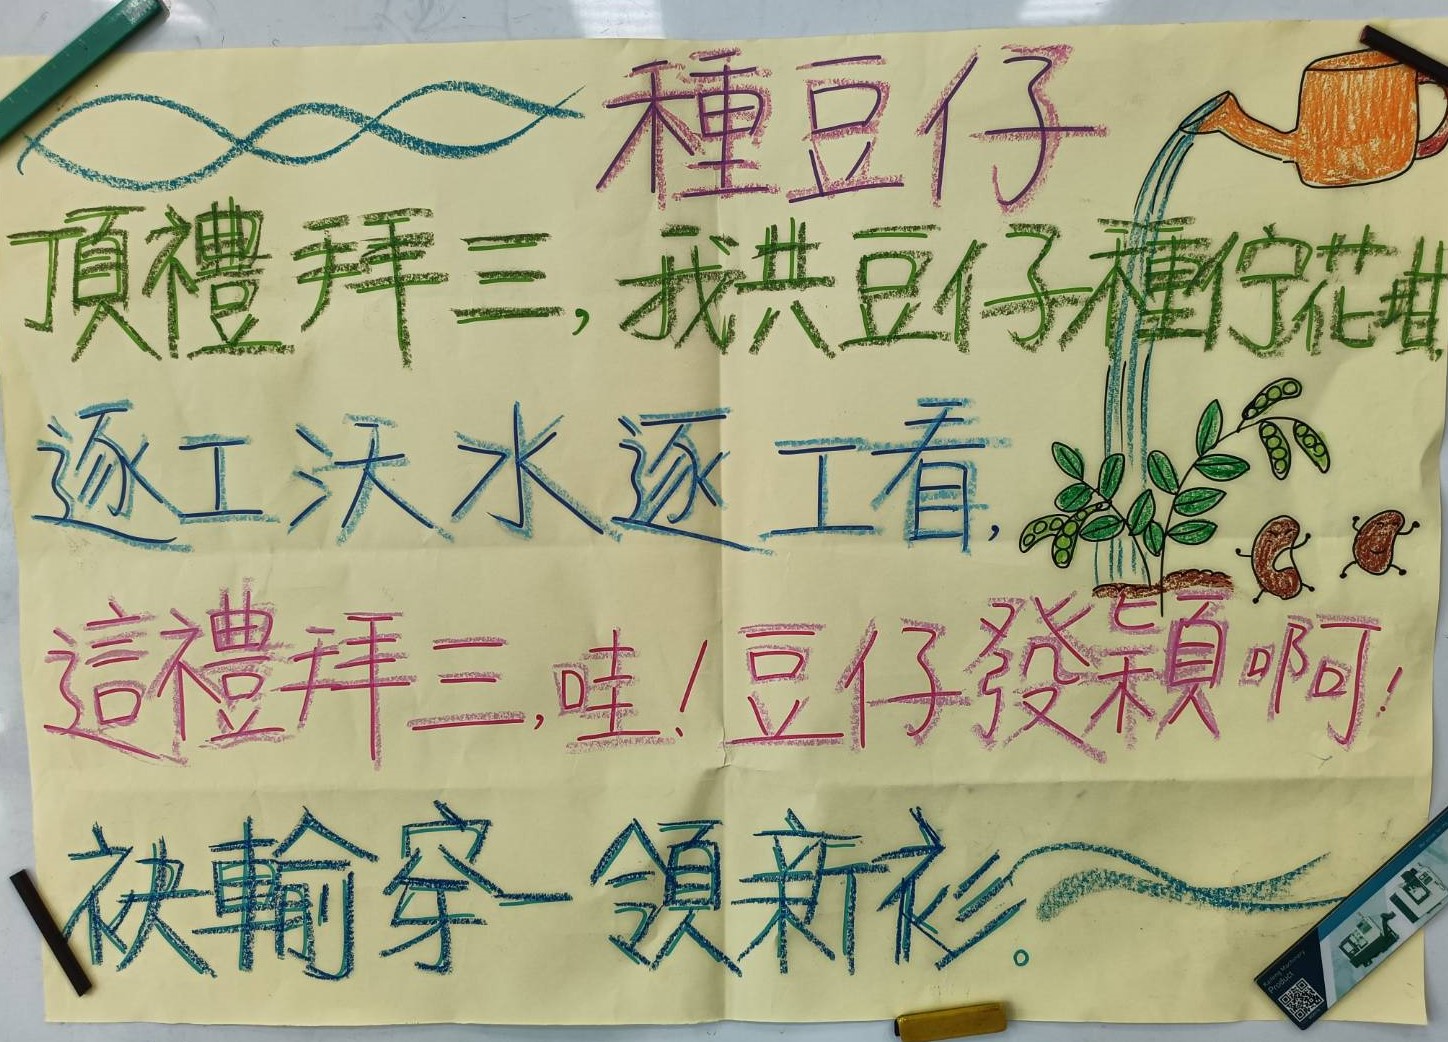 種豆仔
頂禮拜三，我共豆仔種佇花坩，
逐工沃水逐工看，
這禮拜三，哇！豆仔發穎啊！
袂輸穿一領新衫。
Product